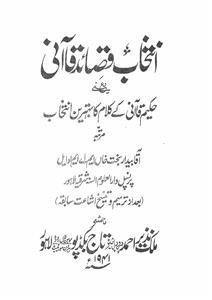 انتخاب قصائد قاآنی
یعنی
حکیم قاآنی کے کلام کا بہترین انتخاب
مرتبہ
آقا بیدار بخت خاں ایم اے ایم او ایل
پرنسپل دارالعلوم السنہ شرقیہ لاہور
(بعد از ترمیم و تنسیخ اشاعت سابقہ)
ناشر
ملک نذیر احمد تاج بکڈپو لاہور
۱۹۴۱ء